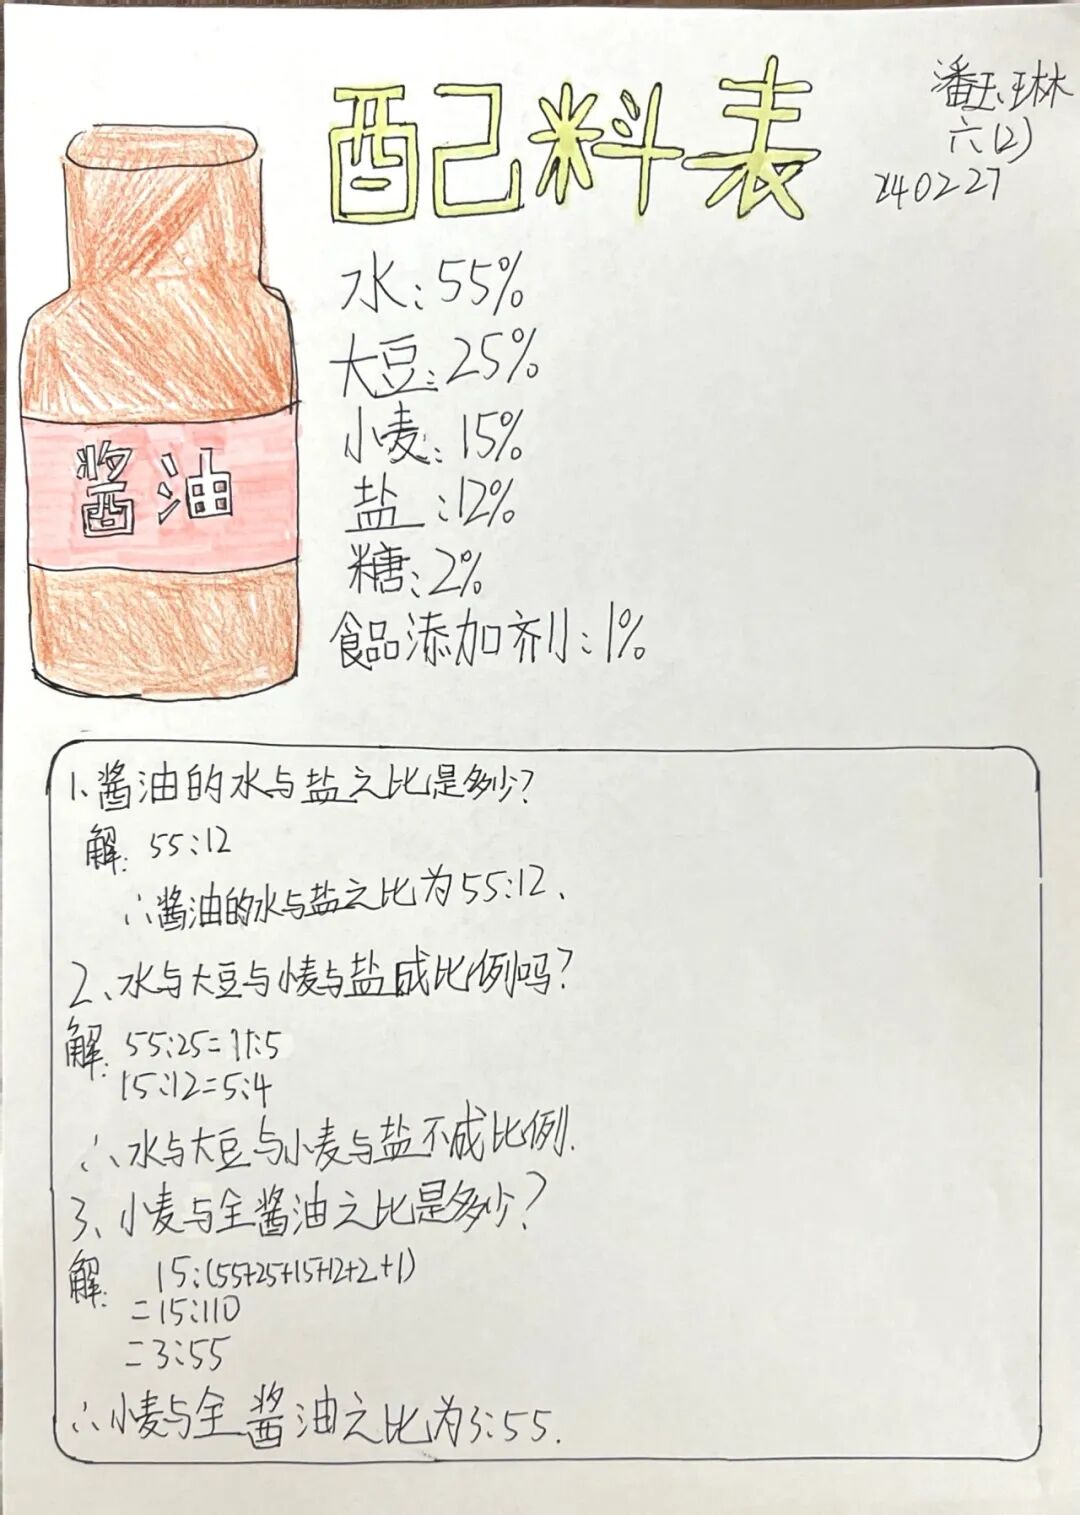 配料表
潘珏琳
六(2)
240227
水:55%
大豆:25%
小麦:15%
盐:12%
糖:2%
食品添加剂:1%
酱油
1、酱油的水与盐之比是多少?
解:55:12
∴酱油的水与盐之比为55:12.
2、水与大豆与小麦与盐成比例吗?
解:55:25=11:5
15:12=5:4
∴水与大豆与小麦与盐不成比例.
3、小麦与全酱油之比是多少?
解: 15:(55+25+15+12+2+1)
=15:110
=3:55
∴小麦与全酱油之比为3:55.